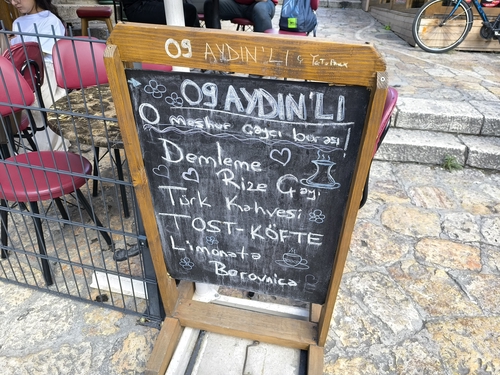 09 AYDIN'LI
09 AYDIN'LI
O meshur çayci burasi!
Demleme
Rize Çayi
Türk Kahvesi
TOST-KÖFTE
Limonata
Borovnica